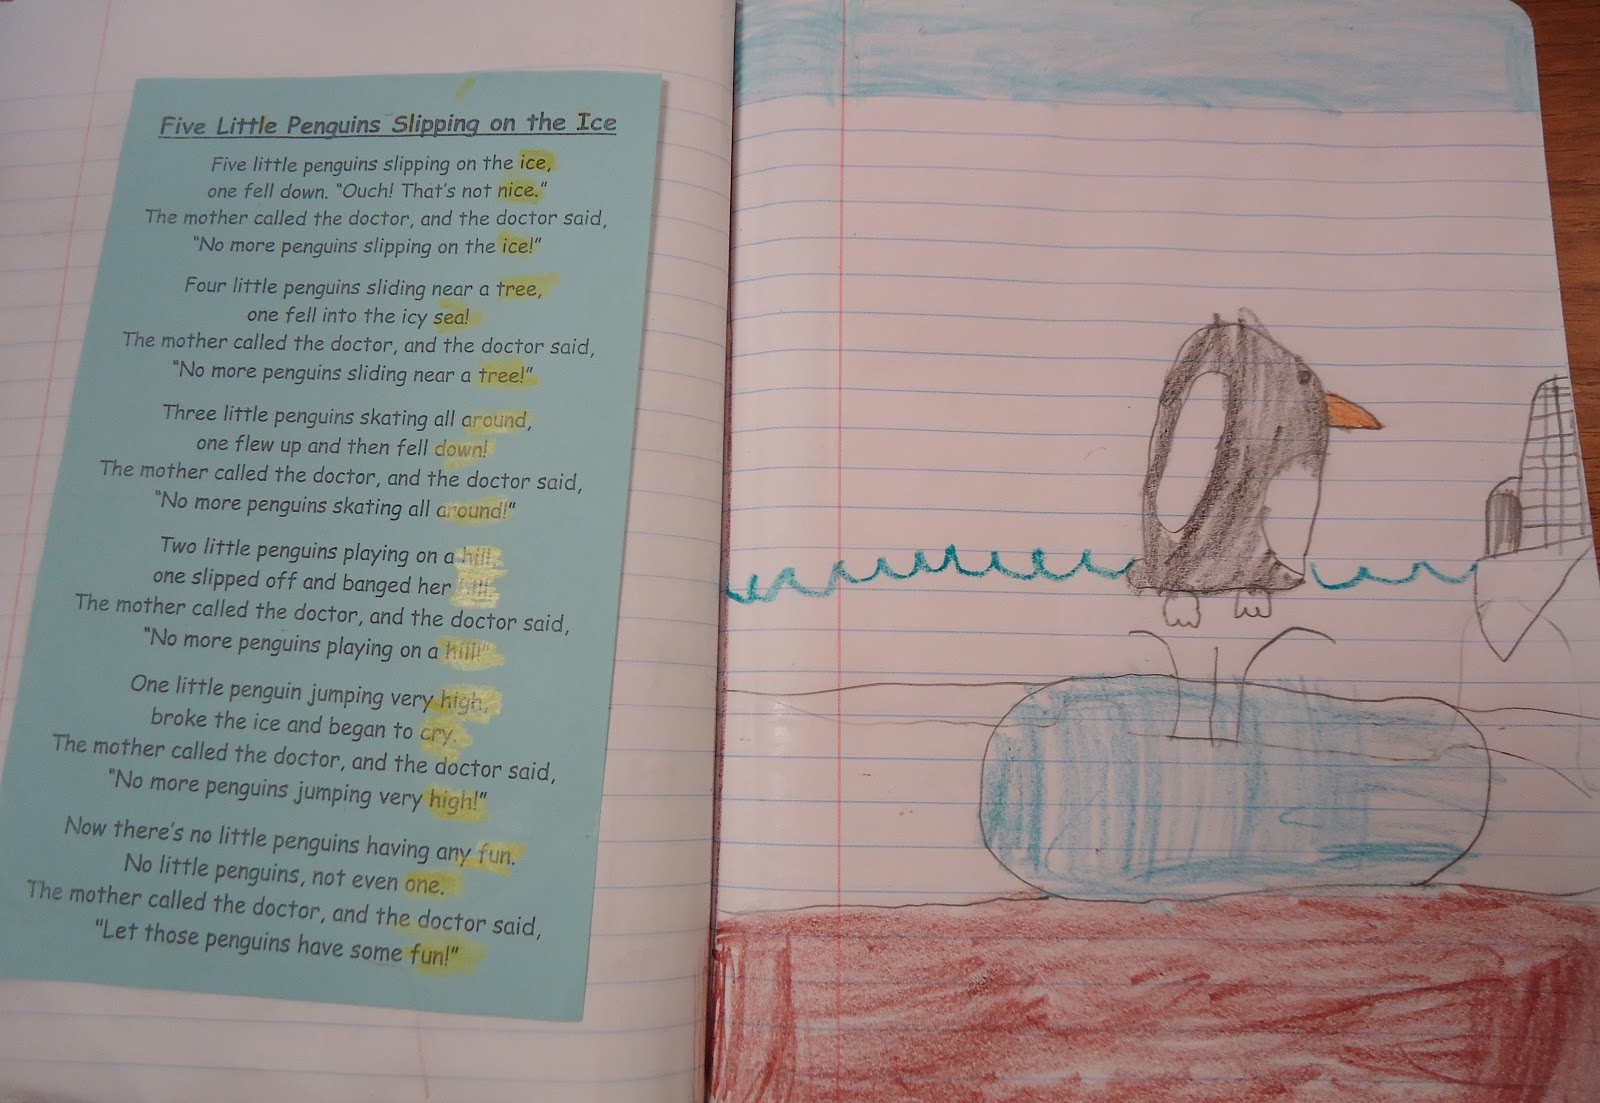 Five Little Penguins Slipping on the Ice
Five little penguins slipping on the ice,
one fell down. "Ouch! That's not nice."
The mother called the doctor, and the doctor said,
"No more penguins slipping on the ice!"
Four little penguins sliding near a tree,
one fell into the icy sea!
The mother called the doctor, and the doctor said,
"No more penguins sliding near a tree!"
Three little penguins skating all around,
one flew up and then fell down!
The mother called the doctor, and the doctor said,
"No more penguins skating all around!"
Two little penguins playing on a hill,
one slipped off and banged her bill.
The mother called the doctor, and the doctor said,
"No more penguins playing on a hill!"
One little penguin jumping very high,
broke the ice and began to cry.
The mother called the doctor, and the doctor said,
"No more penguins jumping very high!"
Now there's no little penguins having any fun.
No little penguins, not even one.
The mother called the doctor, and the doctor said,
"Let those penguins have some fun!"